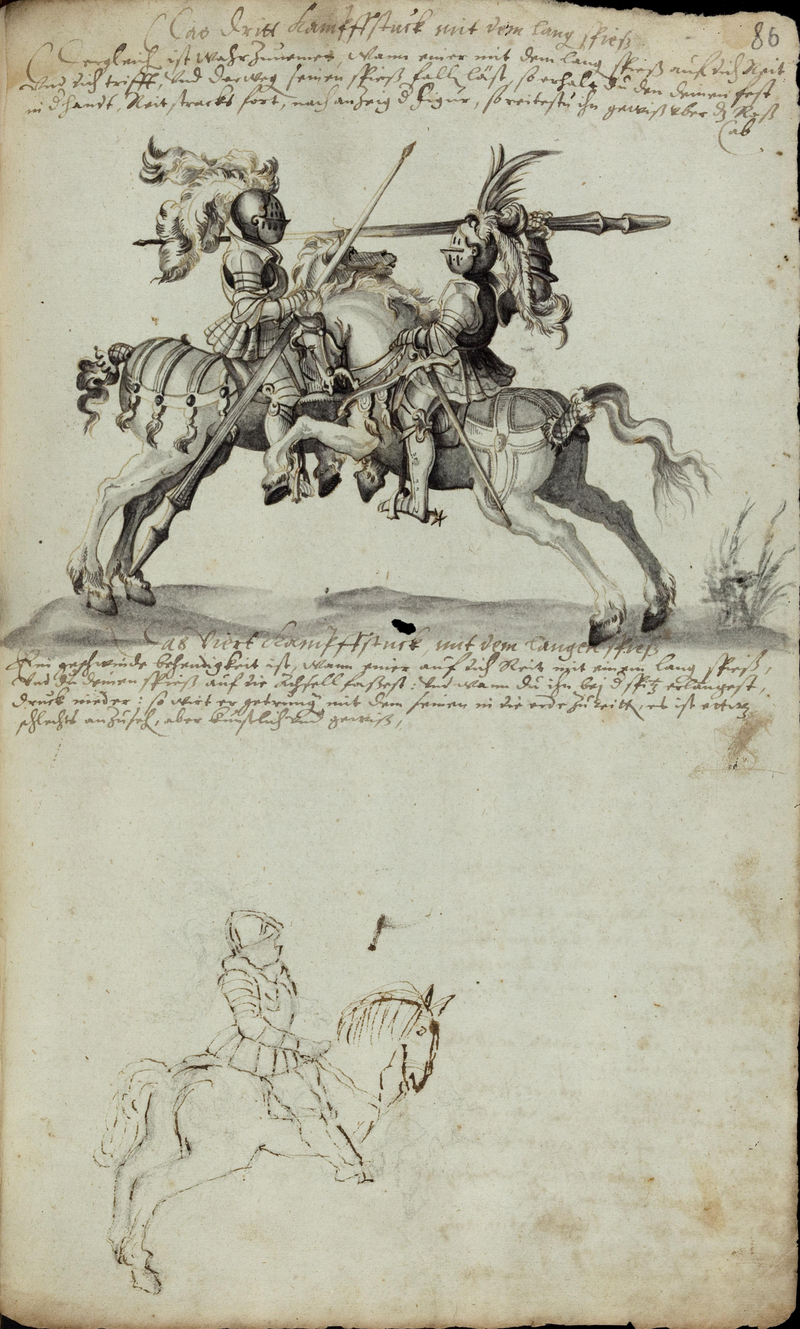 Das dritt Kampffstuck mit dem lang spieß
86
Dergleich ist wahrzunemen, Wann einer mit dem lang spieß auf dich Reit
Und dich trifft, Und derweg seinen spieß fall läst, so erhalt du den deinen fest
in d handt, Reit stracks fort, nach anzeig d Figur, so reitestu ihn gewiß uber dz Roß
ab
Das Viert Kampffstuck, mit dem langen spieß
Ein geschwinde behendigkeit ist, Wann einer auf dich Reit mit einem lang spieß,
Und du deinen spieß auf die Achsell fassest: Und wann du ihn bej d spitz erlangest,
druck nieder: so wirt er getrung mit dem seinen in die erde zu reitt, es ist etwz
schlechts anzuseh, aber kunstlich und gewiß,